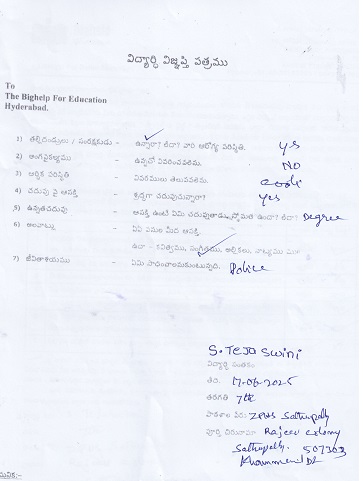 విద్యార్థి విజ్ఞప్తి పత్రము
To
The Bighelp For Education
Hyderabad.
1) తల్లిదండ్రులు / సంరక్షకుడు - ఉన్నారా? లేదా? వారి ఆరోగ్య పరిస్థితి. yes
2) అంగవైకల్యము - ఉన్నచో వివరించవలెను. NO
3) ఆర్థిక పరిస్థితి - వివరములు తెలుపవలెను. cooli
4) చదువు పై ఆసక్తి - శ్రద్ధగా చదువుచున్నారా? yes
5) ఉన్నతచదువు - ఆసక్తి ఉంటే ఏమి చదువుతాడు స్తోమత ఉందా? లేదా? Degree
6) అలవాట్లు - ఏఏ పనుల మీద ఆసక్తి.
ఉదా - కవిత్వము, సంగీతము, అల్లికలు, నాట్యము
7) జీవితాశయము - ఏమి సాధించాలనుకుంటున్నది. Police
S. Teja Swini
విద్యార్థి సంతకం
తేది. 17-06-2025
తరగతి 7th
పాఠశాల పేరు: ZPHS Sathupally
పూర్తి చిరునామా Rajeev colony
Sathupally. 507303
Khammam Dt